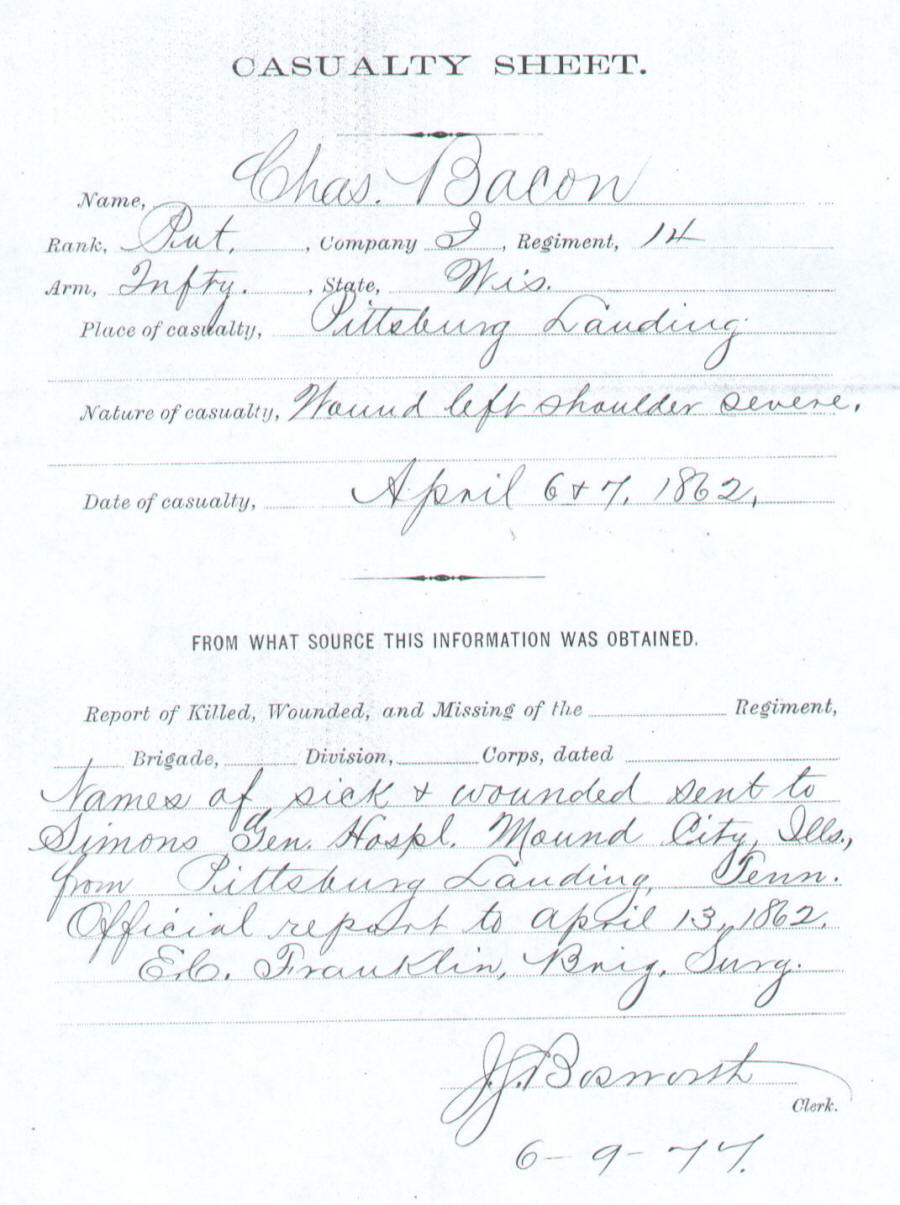 CASUALTY SHEET.
Name, Chas. Bacon
Rank, Pvt. , Company I , Regiment, 14
Arm, Infty. , State, Wis.
Place of casualty, Pittsburg Landing
Nature of casualty, Wound left shoulder severe.
Date of casualty, April 6 & 7, 1862,
FROM WHAT SOURCE THIS INFORMATION WAS OBTAINED.
Report of Killed, Wounded, and Missing of the Regiment,
Brigade, Division, Corps, dated
Names of sick & wounded sent to
Simons Gen. Hospl. Mound City, Ills.,
from Pittsburg Landing, Tenn.
Official report to April 13, 1862.
E.C. Franklin, Brig. Surg.
J.J. Bosworth
Clerk.
6-9-77.